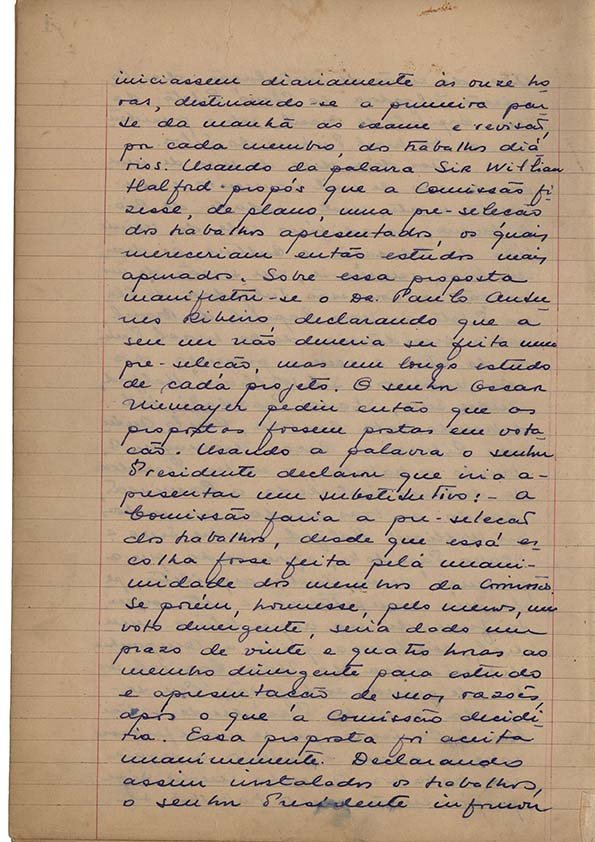 iniciassem diariamente às onze ho
ras, destinando-se a primeira par
te da manhã ao exame e revisão,
por cada membro, do trabalhos diá
rios. Usando da palavra Sir William
Halford propôs que a Comissão fi
zesse, de plano, uma pre-seleção
dos trabalhos apresentados, os quais
mereceriam então estudos mais
apurados. Sobre essa proposta
manifestou-se o Dr. Paulo Antu
nes Ribeiro, declarando que a
seu ver não deveria ser feita uma
pre-seleção, mas um longo estudo
de cada projeto. O senhor Oscar
Niemayer pediu então que as
propostas fossem postas em vota
ção. Usando a palavra o senhor
Presidente declarou que iria a-
presentar um substitutivo: - A
Comissão faria a pre-seleção
dos trabalhos, desde que essa es
colha fosse feita pela unani-
midade dos membros da Comissão.
Se porém, houvesse, pelo menos, um
voto divergente, seria dado um
prazo de vinte e quatro horas ao
membro divergente para estudo
e apresentação de suas razões,
após o que a Comissão decidi
ria. Essa proposta foi aceita
unanimemente. Declarando
assim instalados os trabalhos,
o senhor Presidente informou